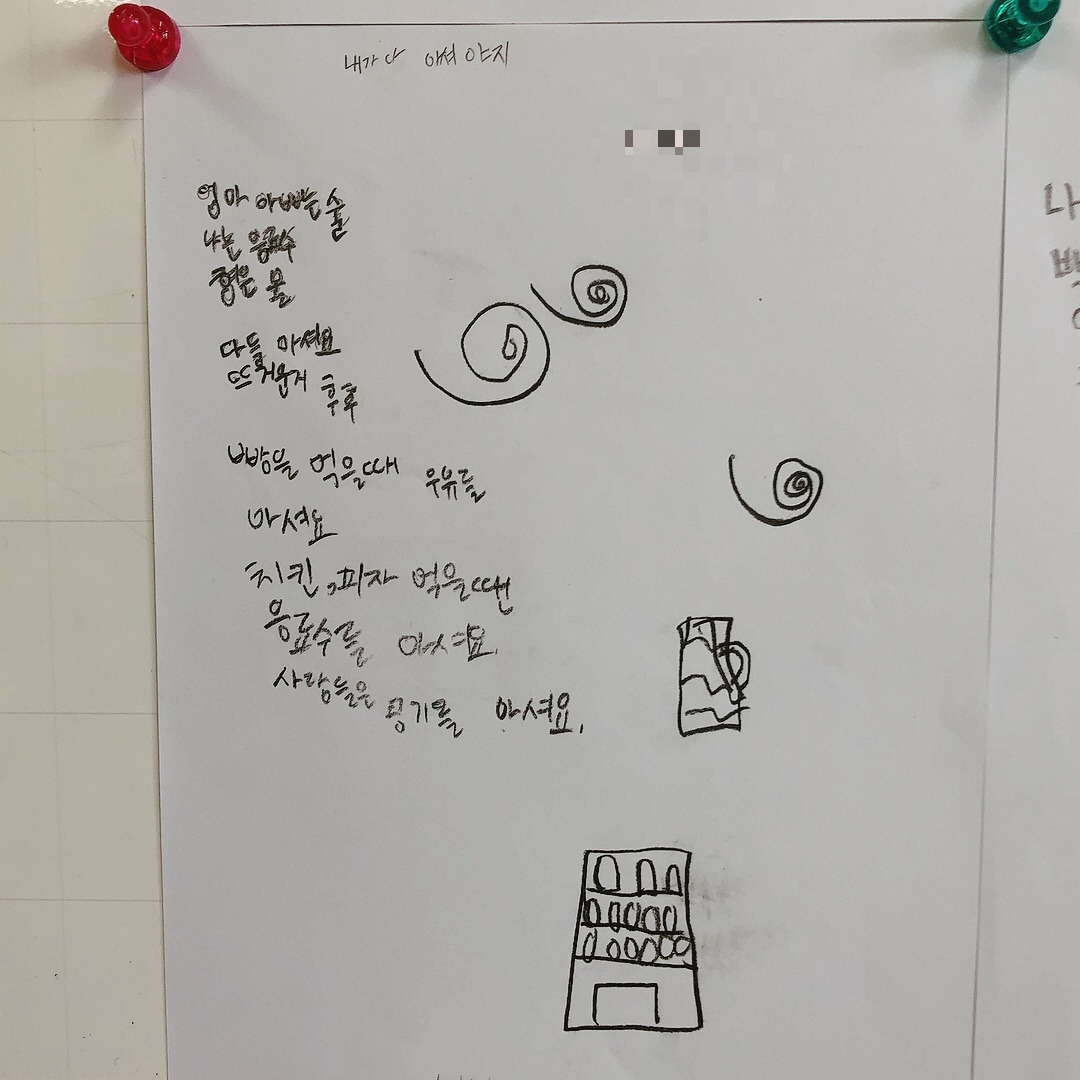 내가 다 마셔야지
엄마 아빠는 술
나는 음료수
형은 물
다들 마셔요
뜨거운거 후후
빵을 먹을때 우유를
마셔요
치킨, 피자 먹을땐
음료수를 마셔요.
사람들은 공기를 마셔요.
나